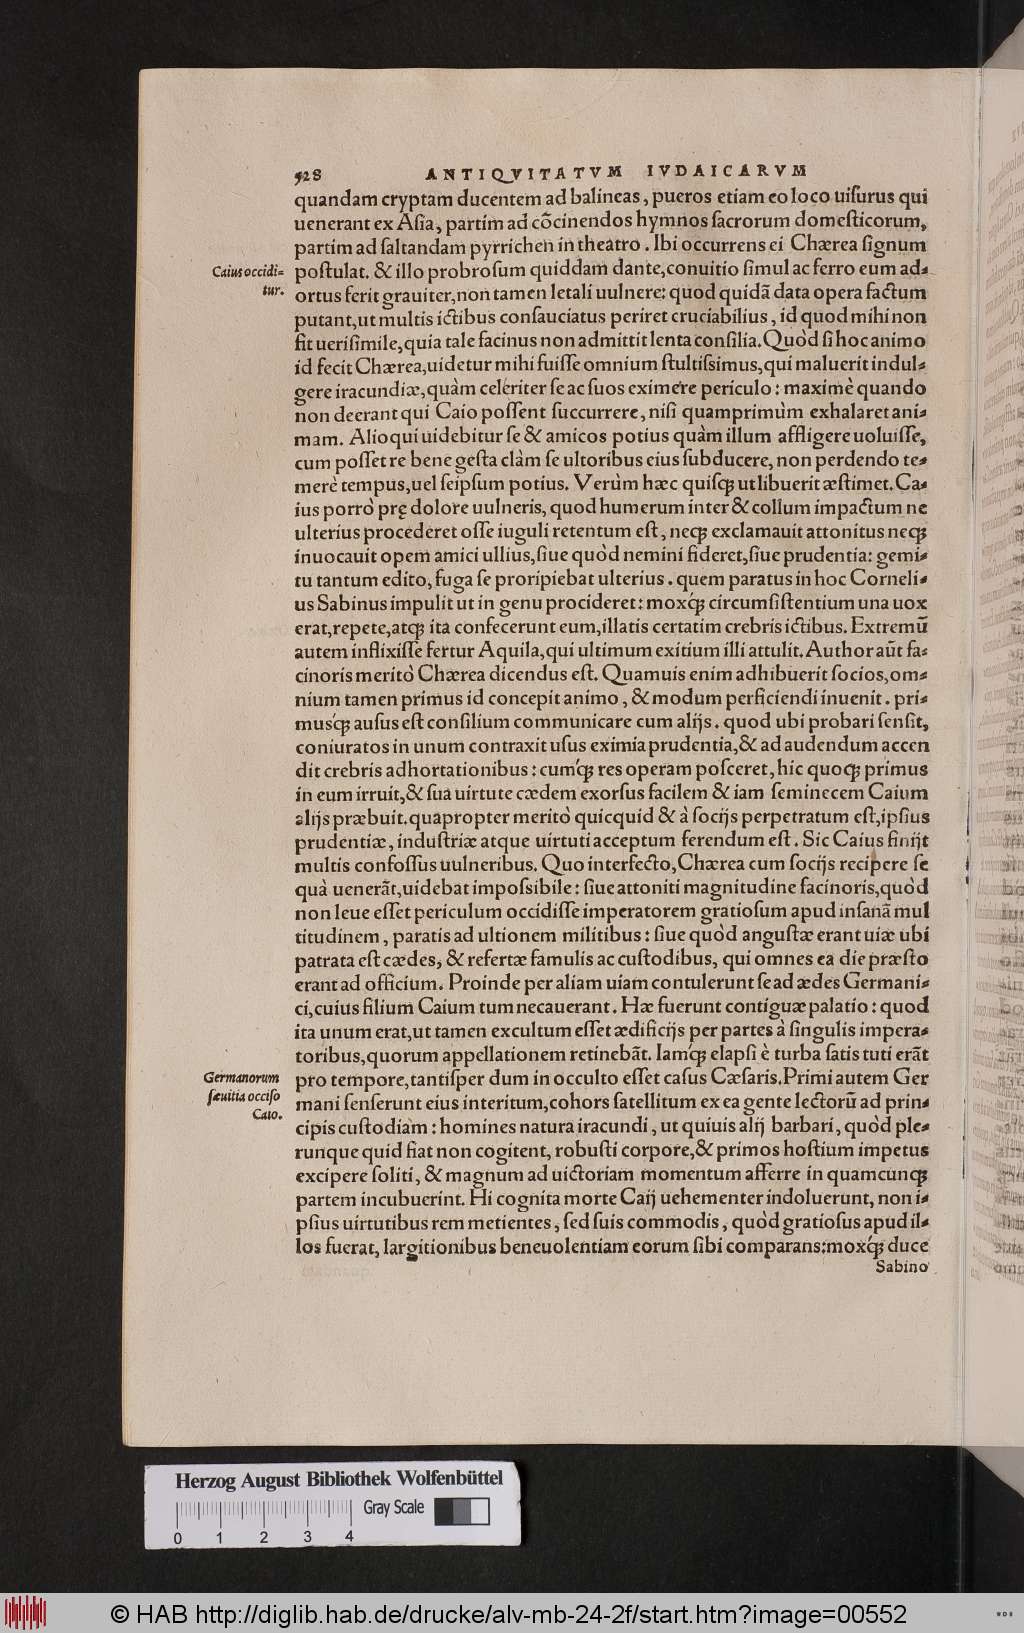 528 ANTIQVITATVM IVDAICARVM
quandam cryptam ducentem ad balineas, pueros etiam eo loco uiſurus qui
uenerant ex Aſia, partim ad cōcinendos hymnos ſacrorum domeſticorum,
partim ad ſaltandam pyrrichen in theatro. Ibi occurrens ei Chærea ſignum
Caius occidi=
tur.
poſtulat. & illo probroſum quiddam dante, conuitio ſimul ac ferro eum ad=
ortus ferit grauiter, non tamen letali uulnere: quod quidã data opera factum
putant, ut multis ictibus conſauciatus periret cruciabilius, id quod mihi non
fit ueriſimile, quia tale facinus non admittit lenta conſilia. Quòd ſi hoc animo
id fecit Chærea, uidetur mihi fuiſſe omnium ſtultiſsimus, qui maluerit indul=
gere iracundiæ, quàm celeriter ſe ac ſuos eximere periculo: maximè quando
non deerant qui Caio poſſent ſuccurrere, niſi quamprimùm exhalaret ani=
mam. Alioqui uidebitur ſe & amicos potius quàm illum affligere uoluiſſe,
cum poſſet re bene geſta clàm ſe ultoribus eius ſubducere, non perdendo te=
merè tempus, uel ſeipſum potius. Verùm hæc quiſqꝫ ut libuerit æſtimet. Ca=
ius porrò prę dolore uulneris, quod humerum inter & collum impactum ne
ulterius procederet oſſe iuguli retentum eſt, neqꝫ exclamauit attonitus neqꝫ
inuocauit opem amici ullius, ſiue quòd nemini fideret, ſiue prudentia: gemi=
tu tantum edito, fuga ſe proripiebat ulterius. quem paratus in hoc Corneli=
us Sabinus impulit ut in genu procideret: moxq́ꝫ circumſiſtentium una uox
erat, repete, atqꝫ ita confecerunt eum, illatis certatim crebris ictibus. Extremũ
autem inflixiſſe fertur Aquila, qui ultimum exitium illi attulit. Author aũt fa=
cinoris meritò Chærea dicendus eſt. Quamuis enim adhibuerit ſocios, om=
nium tamen primus id concepit animo, & modum perficiendi inuenit. pri=
musq́ꝫ auſus eſt conſilium communicare cum alijs. quod ubi probari ſenſit,
coniuratos in unum contraxit uſus eximia prudentia, & ad audendum accen
dit crebris adhortationibus: cumq́ꝫ res operam poſceret, hic quoqꝫ primus
in eum irruit, & ſua uirtute cædem exorſus facilem & iam ſeminecem Caium
alijs præbuit. quapropter meritò quicquid & à ſocijs perpetratum eſt, ipſius
prudentiæ, induſtriæ atque uirtuti acceptum ferendum eſt. Sic Caius finijt
multis confoſſus uulneribus. Quo interfecto, Chærea cum ſocijs recipere ſe
quà uenerãt, uidebat impoſsibile: ſiue attoniti magnitudine facinoris, quòd
non leue eſſet periculum occidiſſe imperatorem gratioſum apud inſanã mul
titudinem, paratis ad ultionem militibus: ſiue quòd anguſtæ erant uiæ ubi
patrata eſt cædes, & refertæ famulis ac cuſtodibus, qui omnes ea die præſto
erant ad officium. Proinde per aliam uiam contulerunt ſe ad ædes Germani=
ci, cuius filium Caium tum necauerant. Hæ fuerunt contiguæ palatio: quod
ita unum erat, ut tamen excultum eſſet ædificijs per partes à ſingulis impera=
toribus, quorum appellationem retinebãt. Iamq́ꝫ elapſi è turba ſatis tuti erãt
Germanorum
ſæuitia occiſo
Caio.
pro tempore, tantiſper dum in occulto eſſet caſus Cæſaris. Primi autem Ger
mani ſenſerunt eius interitum, cohors ſatellitum ex ea gente lectorũ ad prin=
cipis cuſtodiam: homines natura iracundi, ut quiuis alij barbari, quòd ple=
runque quid fiat non cogitent, robuſti corpore, & primos hoſtium impetus
excipere ſoliti, & magnum ad uictoriam momentum afferre in quamcunqꝫ
partem incubuerint. Hi cognita morte Caij uehementer indoluerunt, non i=
pſius uirtutibus rem metientes, ſed ſuis commodis, quòd gratioſus apud il=
los fuerat, largitionibus beneuolentiam eorum ſibi comparans: moxq́ꝫ duce
Sabino
Herzog August Bibliothek Wolfenbüttel
Gray Scale
0 1 2 3 4
© HAB http://diglib.hab.de/drucke/alv-mb-24-2f/start.htm?image=00552